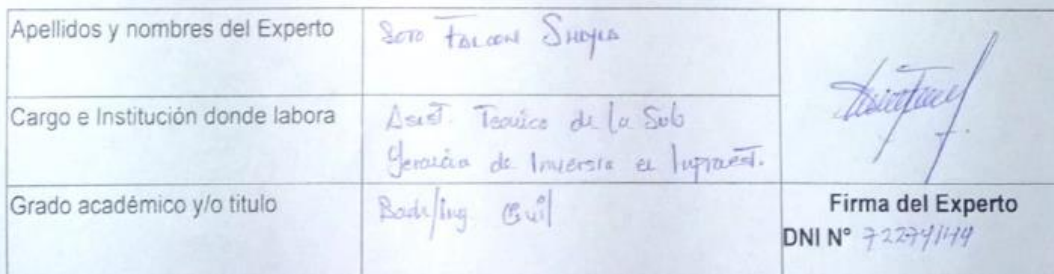 Apellidos y nombres del Experto
Soto Falcon
Cargo e Institución donde labora
Asist. Tecnico de la Sub
Gerencia de Inversión e Infraest.
Grado académico y/o titulo
Bach/Ing. Civil
Firma del Experto
DNI N°